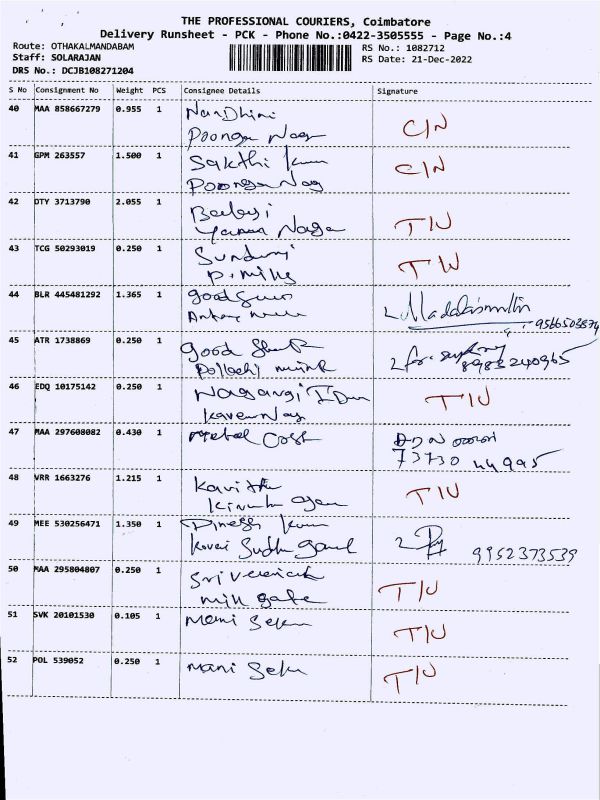 THE PROFESSIONAL COURIERS, Coimbatore
Delivery Runsheet - PCK - Phone No.:0422-3505555 - Page No.:4
Route: OTHAKALMANDABAM RS No.: 1082712
Staff: SOLARAJAN RS Date: 21-Dec-2022
DRS No.: DCJB108271204
S No Consignment No Weight PCS Consignee Details Signature
40 MAA 858667279 0.955 1 Nandhini C/N
Poonga Nagr
41 GPM 263557 1.500 1 Sakthi Kum C/N
Poonga Nag
42 DTY 3713790 2.055 1 T/U
Naga
43 TCG 50293019 0.250 1 T/U
P. mills
44 BLR 445481292 1.365 1 good
9566503874
45 ATR 1738869 0.250 1 Good for.
Pollachi 8983240965
46 EDQ 10175142 0.250 1 T/U
Nag
47 MAA 297608082 0.430 1 Metal Cast
73730 44995
48 VRR 1663276 1.215 1 Kavitha T/U
49 MEE 530256471 1.350 1 Dinesh Kum
Kovai Sudha 9952373539
50 MAA 295804807 0.250 1 Sri T/U
mill gate
51 SVK 20101530 0.105 1 Mani Seku T/U
52 POL 539052 0.250 1 Mani Seku T/U